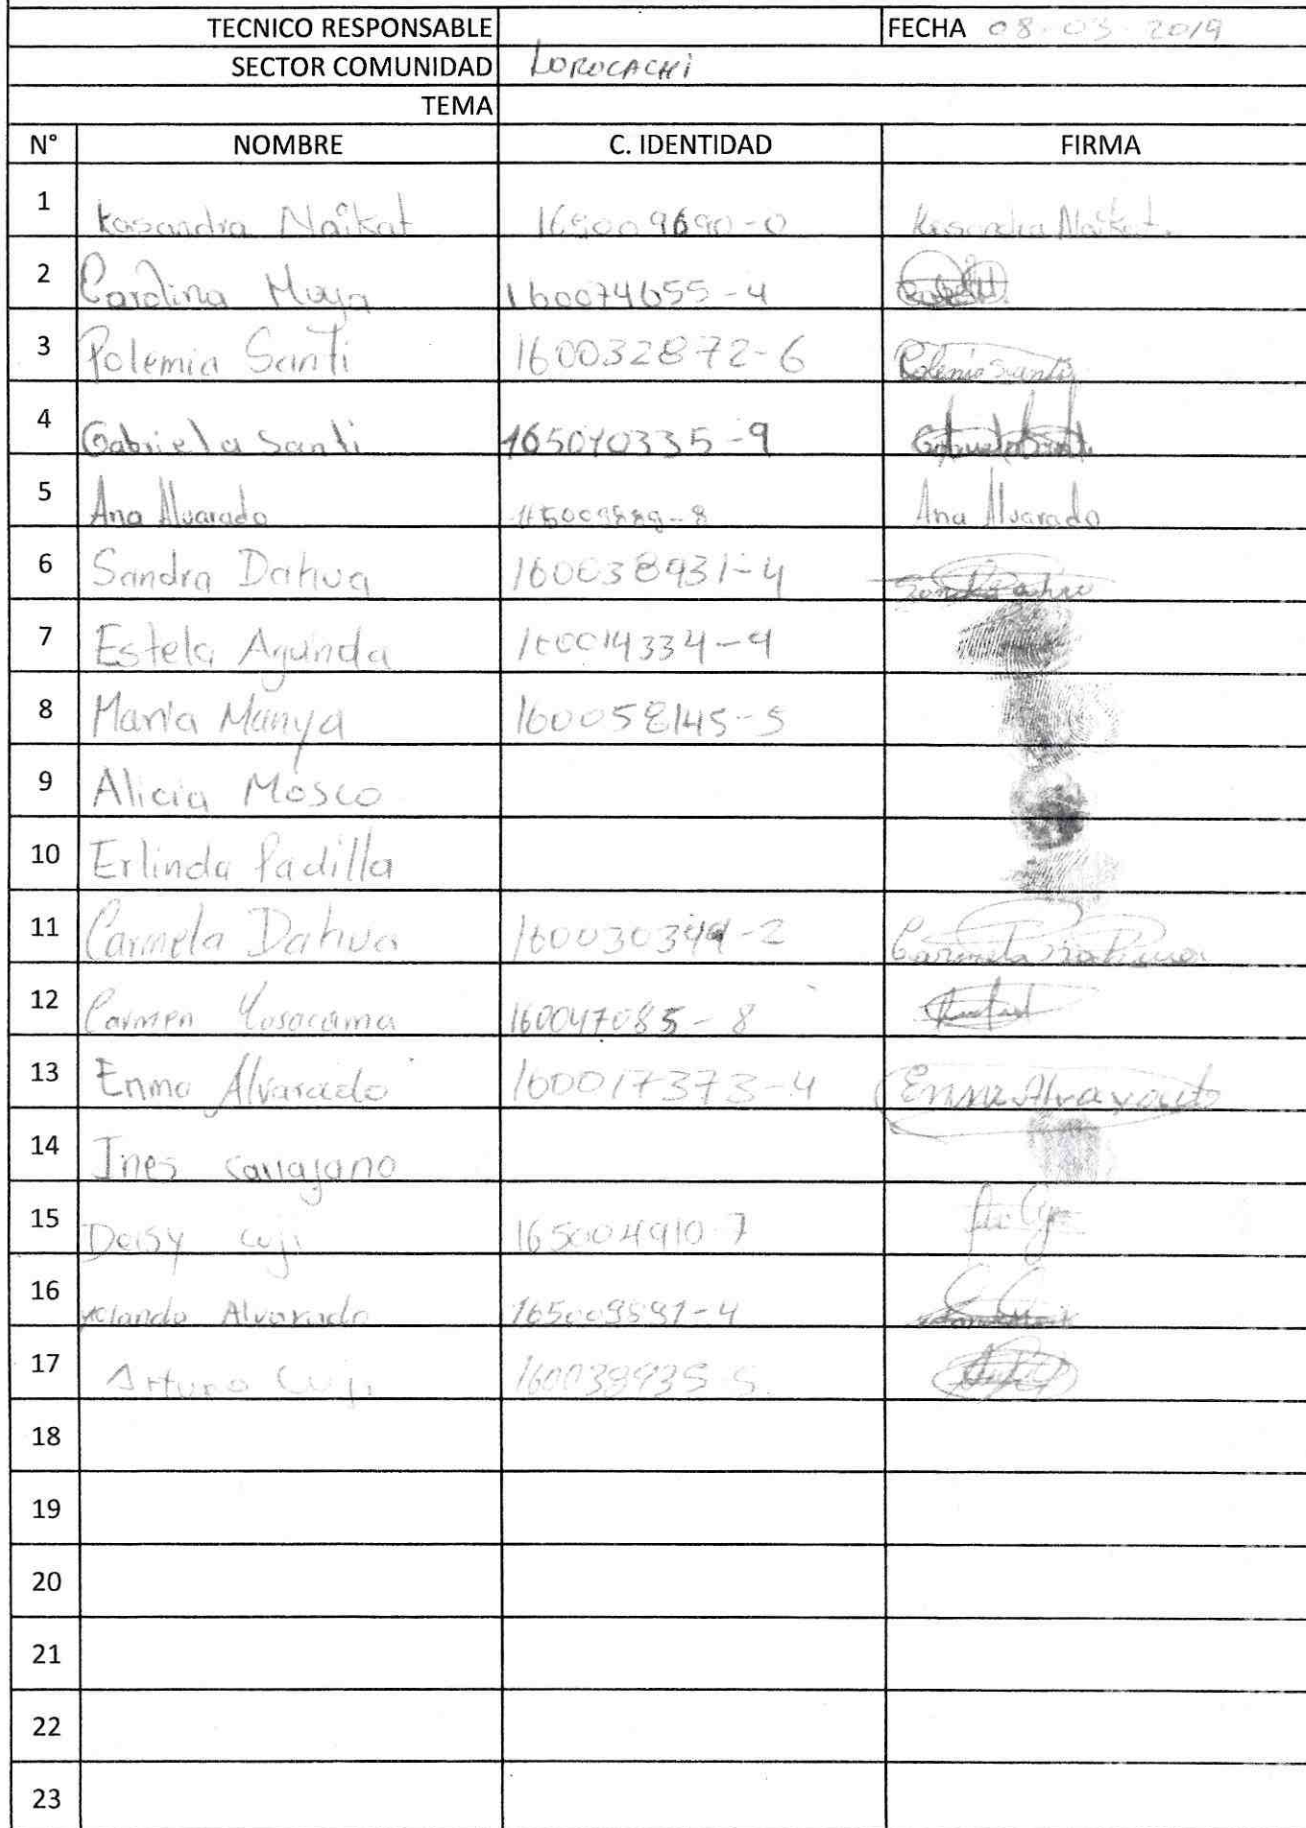 TECNICO RESPONSABLE FECHA 08-03-2019
SECTOR COMUNIDAD LOROCACHI
TEMA
N° NOMBRE C. IDENTIDAD FIRMA
1 Kasandra Naikat 165009690-0 Kasandra Naikat
2 Carolina Moya 160074655-4
3 Polemia Santi 160032872-6 Polemia Santi
4 Gabriela Santi 165010335-9
5 Ana Alvarado Ana Alvarado
6 Sandra Dahua 160038931-4
7 Estela Aguinda 160014334-9
8 Maria Manya 160058145-5
9 Alicia Mosco
10 Erlinda Padilla
11 Carmela Dahua Carmela Dahua
12 Carmen 160047085-8
13 Enma Alvarado 160017373-4 Enma Alvarado
14 Ines
15 Deisy Cuji 165004910-7
16 Yolanda Alvarado
17 Arturo Cuji
18
19
20
21
22
23